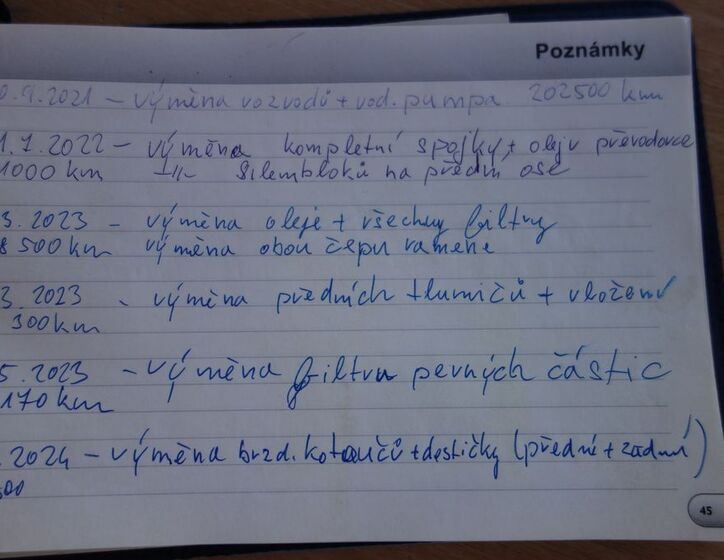 Poznámky
0.9.2021 - výměna rozvodů + vod. pumpa 202500 km
1.7.2022 - výměna kompletní spojky, + olej v převodovce
1000 km -"- silembloků na přední ose
3.2023 - výměna oleje + všechny filtry
8 500 km výměna obou čepu ramene
3.2023 - výměna předních tlumičů + uložení
300 km
5.2023 - výměna filtru pevných částic
170 km
.2024 - výměna brzd. kotoučů + destičky (přední + zadní)
500
45